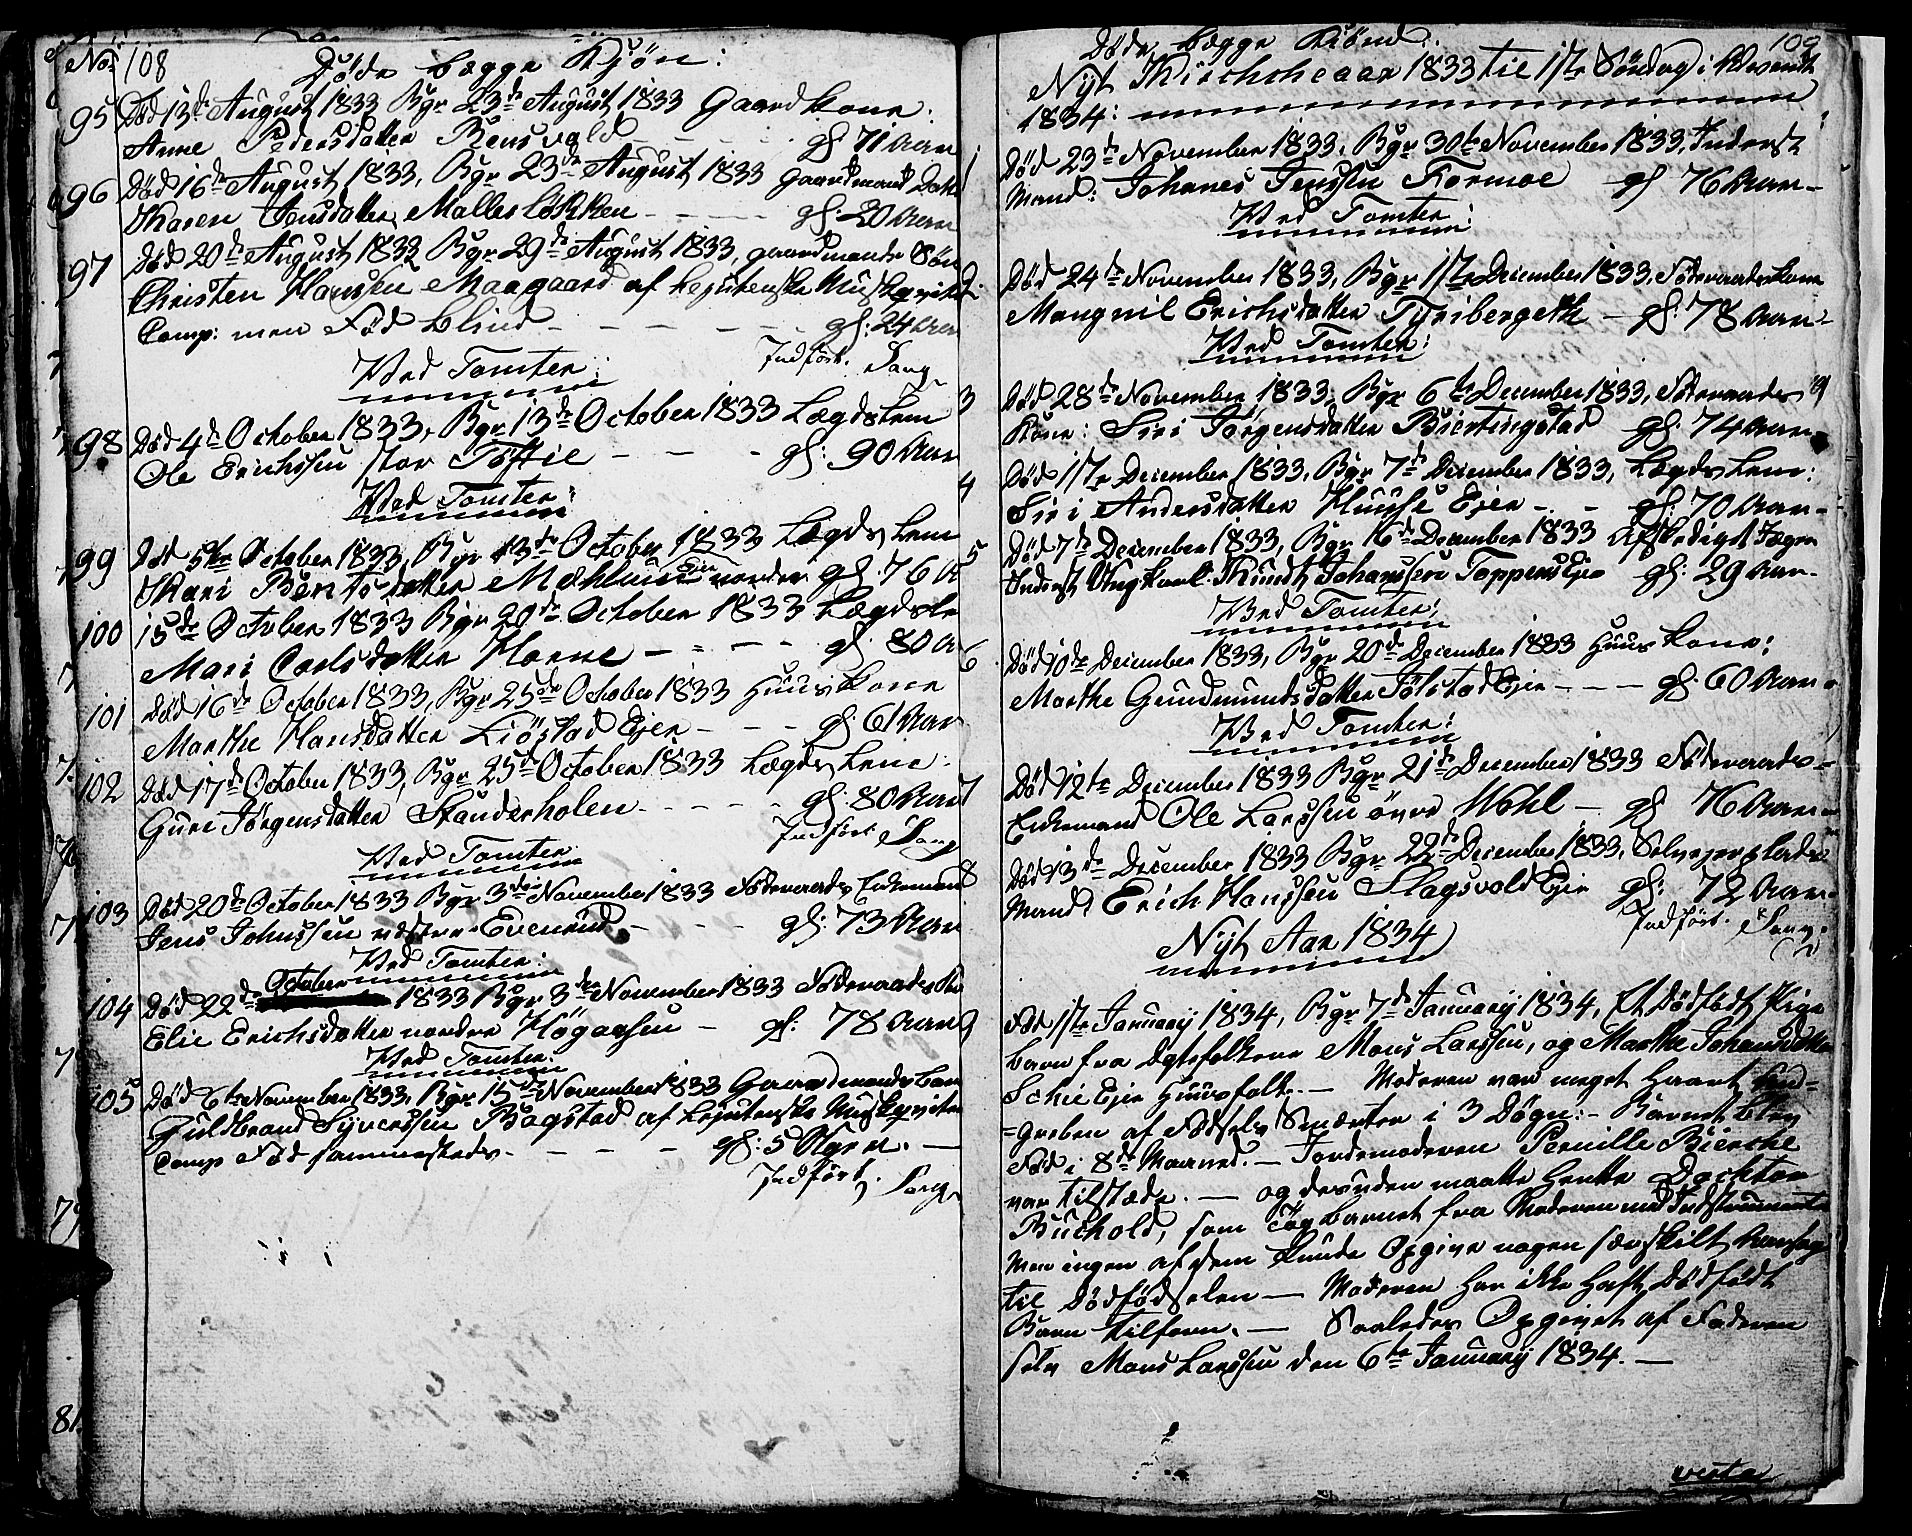 No: 108
Døde begge Kjøn:
95 Død 13de August 1833 Bgr 23de August 1833 Gaardkone:
Anne Pedersdatter Rensvold - - - gl: 71 Aar
96 Død 16de August 1833, Bgr 23de August 1833 Gaardmands Datter
Karen Jensdatter Malleslökken - - - gl: 20 Aar
97 Død 20de August 1833 Bgr 29de August 1833, gaardmands Søn
Christen Hanssen Maagaard af Lesjiterske Musqveter
Comp: men Fød blind - - - - - gl: 24 Aar
Ved Tomter: Indført. Sorg
98 Død 4de October 1833, Bgr 13de October 1833 Lægdslem
Ole Erichssen stor Töftte - - - gl: 90 Aar
Ved Tomter:
99 Død 5te October 1833, Bgr 13de October 1833 Lægds Lem
Kari Bentsdatter Mæhlum Ejer nordre gl: 76 A
100 15de October 1833 Bgr 20de October 1833 Lægdsle
Mari Carlsdatter Horne - - - gl. 80 A
101 Død 16de October 1833, Bgr 25de October 1833 Huus Kone
Marthe Hansdatter Liöstad Ejer - - - gl: 61 Aar
102 Død 17de October 1833, Bgr 25de October 1833 Lægds Lem:
Guri Jörgensdatter Standerholen - - - - gl: 80 Aar
Indført Sorg
Ved Tomter
103 Død 20de October 1833 Bgr 3die November 1833 Föderaads Enkemand
Jens Johnssen vestre Evenrud - - - gl: 73 Aar
Ved Tomter:
104 Død 22de October 1833 Bgr 3die November 1833 Föderaadsko
Elie Erichsdatter nordre Högaasen - gl: 78 Aar
Ved Tomter:
105 Død 6te November 1833, Bgr 15de November 1833 Gaardmands barn
Guldbrand Syverssen Bogstad af Lesjiterske Musqveter
Comp Fød sammesteds - - - - gl: 5 Uger. -
Indført. Sorg
109
Døde begge Kiønd:
Nyt Kirckeaar 1833 til 1ste Søndag i Advendt
1834:
1 Død 23de November 1833, Bgr 30te November 1833, Inderst
Mand: Johanes Jenssen Formoe gl 76 Aar-
Ved Tomter:
2. Død 24de November 1833, Bgr 1ste December 1833, Föderaadskone
Mangnil Erichsdatter Tyribergeth - gl: 78 Aar-
Ved Tomter:
3 Død 28de November 1833, Bgr 6te December 1833, Föderaads
Kone: Siri Jörgensdatter Biertingstad gl: 74 Aar
4 Død 1ste December 1833, Bgr 7de December 1833, Lægds Lem:
Siri Andersdatter Huuse Ejer - - gl: 70 Aar-
5 Død 7de December 1833, Bgr 16de December 1833 Afskediget Jæger
Inderst Ungkarl Knudt Johanssen Toppens Eje gl: 29 Aar-
Ved Tomter:
6 Død 10de December 1833, Bgr 20de December 1833 Huus Kone:
Marthe Gundmundsdatter Tölstad Ejer - - - gl: 60 Aar
Ved Tomter:
7 Død 12te December 1833 Bgr 21de December 1833 Föderaads-
Enkemand Ole Larssen övre Wohl - gl 76 Aar
8 Død 13de December 1833 Bgr 22de December 1833, Selvejerplads
Mand Erich Hanssen Slagsvold Eje gl: 72 Aar
Indført. Sorg:
Nyt Aar 1834
9 Fød 1ste January 1834, Bgr 7de January 1834, Et Dødfødt Pige
barn fra Egtefolkene Mons Larssen, og Marthe Johansdatter
Schie Ejer Huusfolk. - Moderen var meget haart And-
=greben af Födsels Smerter i 3 Døgn:- Barnet blev
Fød i 8de Maaned. - Jordemoderen Pernille Bierche
var tilstæde. - og desuden maatte hente Docktor
Buchold, som tog barnet fra Moderen med Instrumenter
Men ingen af dem kunde Opgive nogen særskilt Aarsag
til Dödfödselen - Moderen har ikke haft Dødfødt
Barn tilforn. - Saaledes Opgivet af Faderen
selv Mons Larssen den 6te January 1834. -
verte